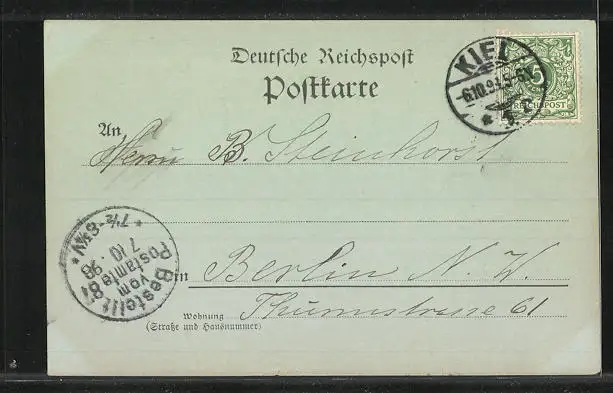 Deutsche Reichspost
Postkarte
KIEL
6.10.98.5-6N
* 1.
5
REICHSPOST
An
Herrn B. Steinhorst
in Berlin N. W.
Wohnung
(Straße und Hausnummer)
Thurmstrasse 61
Bestellt
vom
Postamte 87
7/10.98
* 7½-8¾V *